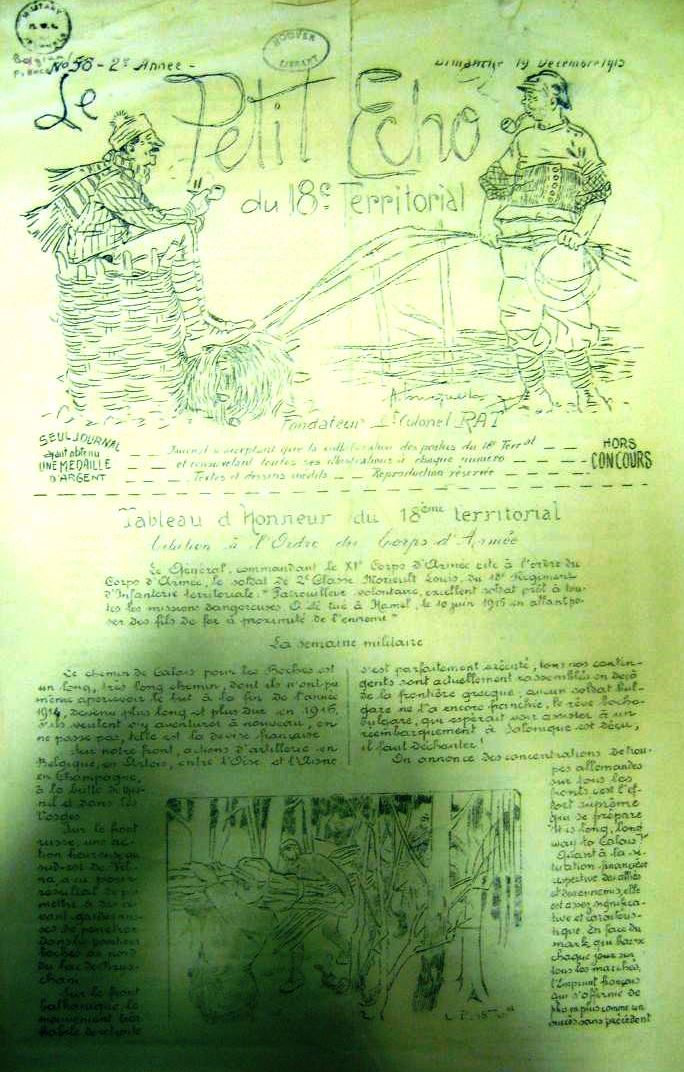 MILITARY
HOOVER
LIBRARY
No 58 - 2e Année -
Dimanche 19 Décembre 1915
Le Petit Echo
du 18e Territorial
Fondateur Lt Colonel RAT
SEUL JOURNAL
ayant obtenu
UNE MEDAILLE
D'ARGENT
Journal n'acceptant que la collaboration des poilus du 18e Terral
et renouvelant toutes ses illustrations à chaque numéro
Textes et dessins inédits - Reproduction réservée
HORS
CONCOURS
Tableau d'Honneur du 18ème territorial
Citation à l'Ordre du Corps d'Armée
Le Général, commandant le XIe Corps d'Armée cite à l'ordre du
Corps d'Armée, le soldat de 2e Classe Louis, du 18e Régiment
d'Infanterie territoriale: "Patrouilleur volontaire, excellent soldat prêt à tou-
tes les missions dangereuses. A été tué à Hamel, le 10 juin 1915 en allant po-
ser des fils de fer à proximité de l'ennemi"
La semaine militaire
Le chemin de Calais pour les Boches est
un long, très long chemin, dont ils n'ont pu
même apercevoir le but à la fin de l'année
1914, devenu plus long et plus dur en 1915,
s'ils veulent s'y aventurer à nouveau, on
ne passe pas, telle est la devise française
Sur notre front, actions d'artillerie en
Belgique, en Artois, entre l'Oise et l'Aisne
en Champagne,
à la butte du Mes-
nil et dans les
Vosges
Sur le front
russe, une ac-
tion heureuse au
sud-est de
a eu pour
résultat de per-
mettre à
avant-gardes rus-
ses de pénétrer
dans les positions
boches au nord
du lac de
Sur le front
balkanique, le
mouvement
de retraite
s'est parfaitement exécuté, tous nos contin-
gents sont actuellement rassemblés en deçà
de la frontière grecque, aucun soldat bul-
gare ne l'a encore franchie, le rêve bocho-
bulgare, qui espérait voir assister à un
réembarquement à Salonique est déçu,
il faut déchanter!
On annonce des concentrations de trou-
pes allemandes
sur tous les
fronts c'est l'ef-
fort suprême
qui se prépare
"It is long, long
way to Calais!"
Quant à la si-
tuation financière
respective des alliés
et des ennemis, elle
est assez significa-
tive et caractéris-
tique. En face du
mark qui baisse
chaque jour sur
tous les marchés,
l'Emprunt français
qui s'affirme de
plus en plus comme un
succès sans précédent